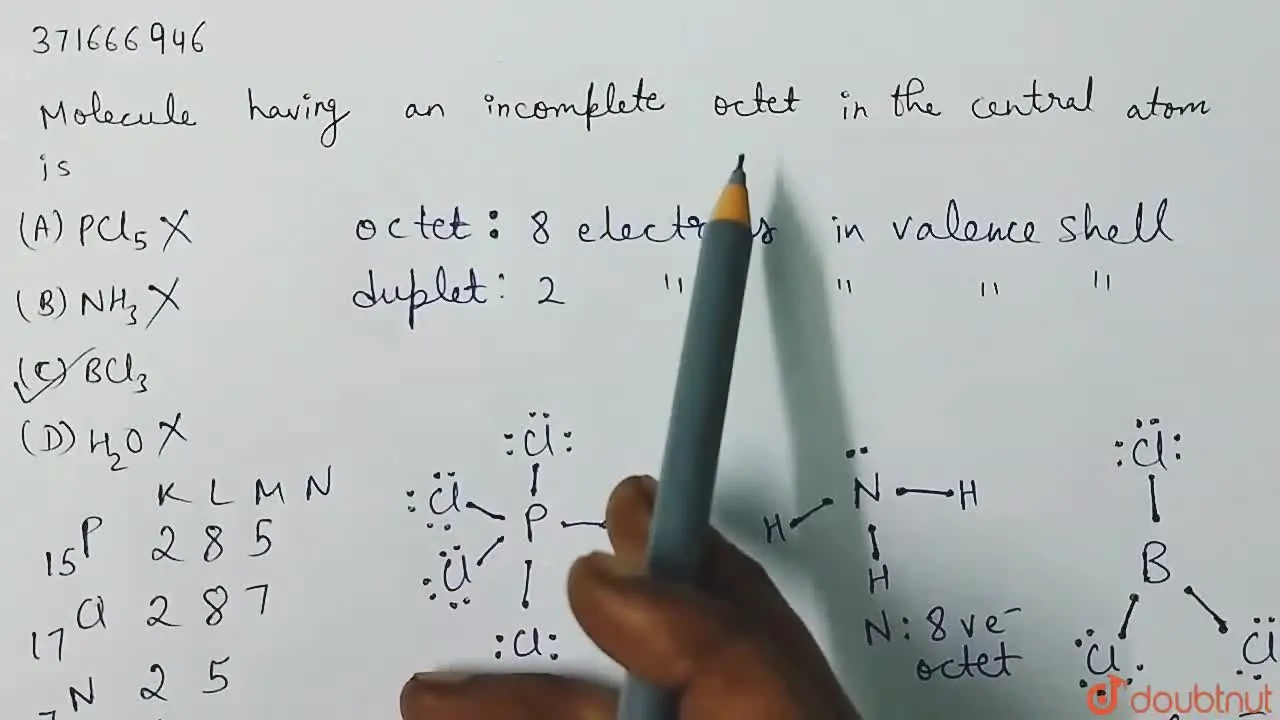 371666946
Molecule having an incomplete octet in the central atom
is
(A) PCl5 X
octet: 8 electrons in valence shell
(B) NH3 X
duplet: 2 " " " "
(C) BCl3
(D) H2O X
K L M N
15P 2 8 5
17Cl 2 8 7
N 2 5
Cl
Cl
P
Cl
Cl
N
H
H
H
N: 8 ve-
octet
Cl
B
Cl
Cl
doubtnut